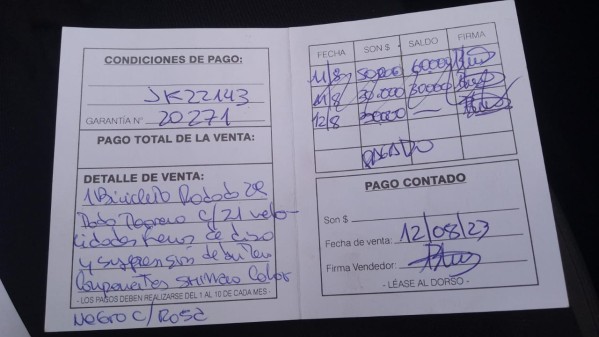 CONDICIONES DE PAGO:
JK22143
GARANTÍA N° 20271
PAGO TOTAL DE LA VENTA:
DETALLE DE VENTA:
1 Bicicleta Rodado 29
c/21 velo-
cidades frenos de disco
y suspensión
componentes Shimano Color
- LOS PAGOS DEBEN REALIZARSE DEL 1 AL 10 DE CADA MES -
Negro c/Rosa
FECHA SON $ SALDO FIRMA
11/8 50.000 60000
11/8 30.000 30000
12/8 30000 —
PAGADO
PAGO CONTADO
Son $
Fecha de venta: 12/08/23
Firma Vendedor:
- LÉASE AL DORSO -